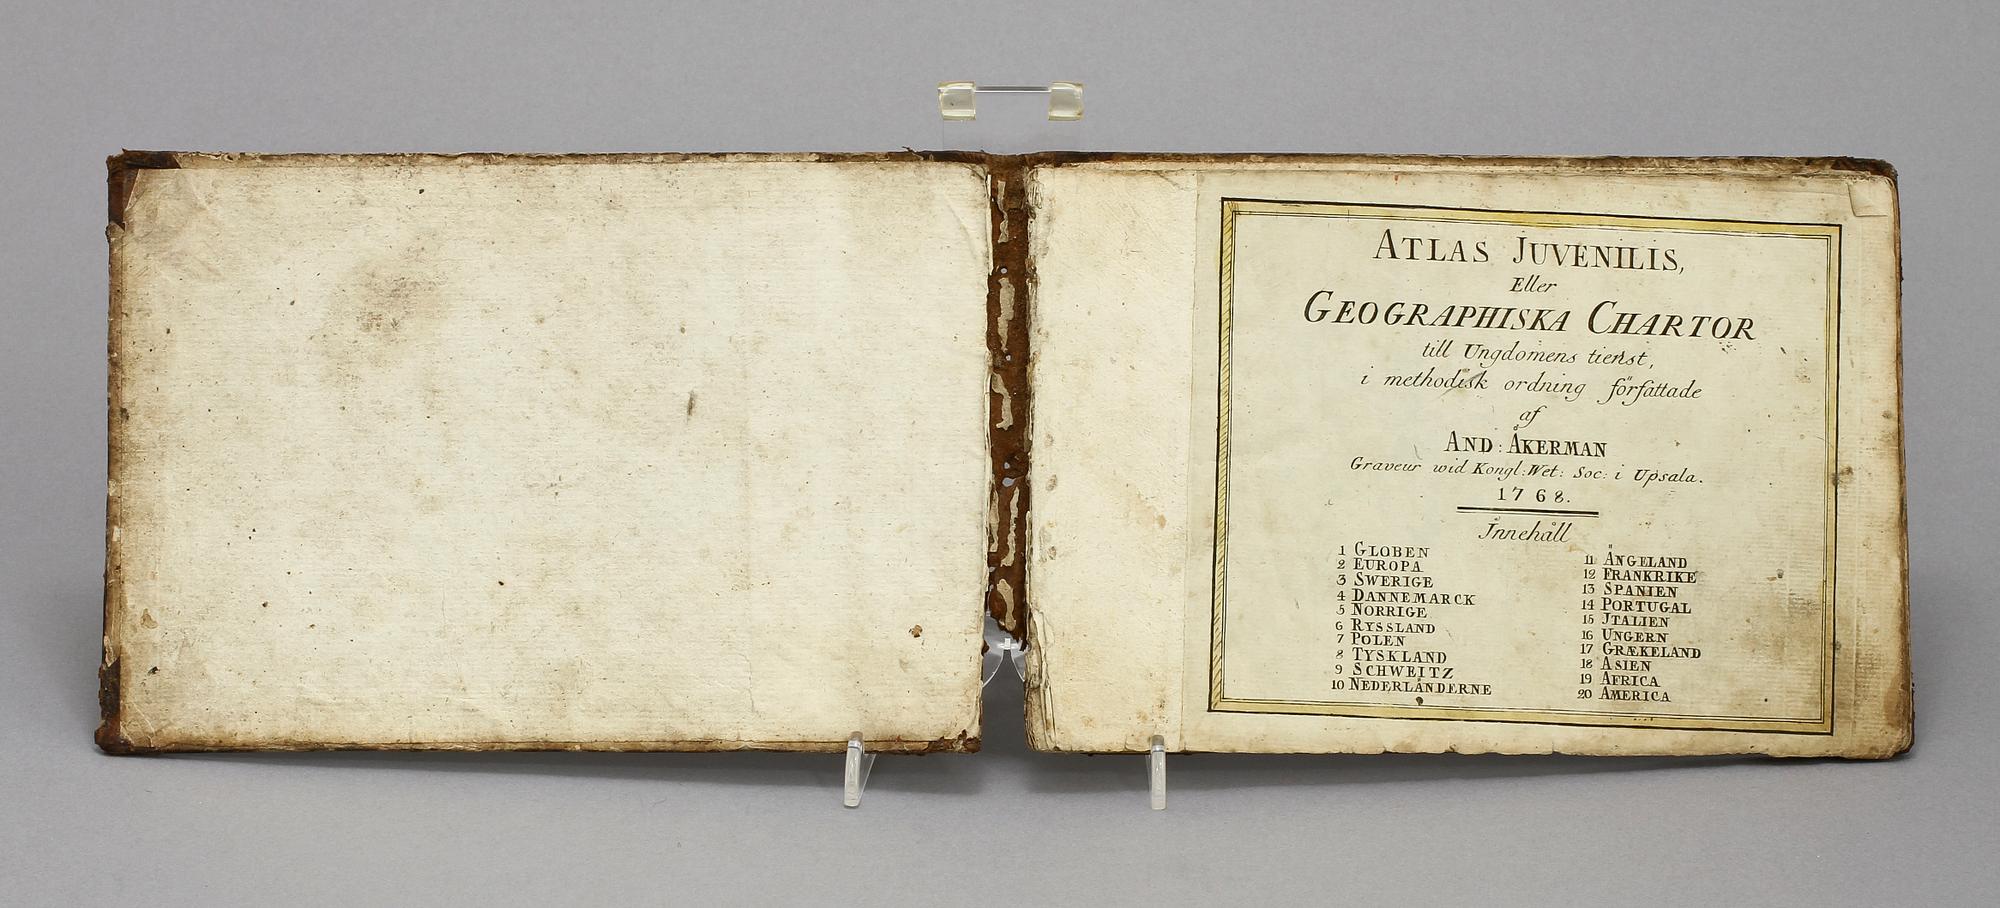 ATLAS JUVENILIS,
Eller
GEOGRAPHISKA CHARTOR
till Ungdomens tienst,
i methodisk ordning författade
af
AND: ÅKERMAN
Graveur wid Kongl: Wet: Soc: i Upsala.
1768.
Innehåll
1 GLOBEN
2 EUROPA
3 SWERIGE
4 DANNEMARCK
5 NORRIGE
6 RYSSLAND
7 POLEN
8 TYSKLAND
9 SCHWEITZ
10 NEDERLÄNDERNE
11 ÄNGELAND
12 FRANKRIKE
13 SPANIEN
14 PORTUGAL
15 JTALIEN
16 UNGERN
17 GRÆKELAND
18 ASIEN
19 AFRICA
20 AMERICA